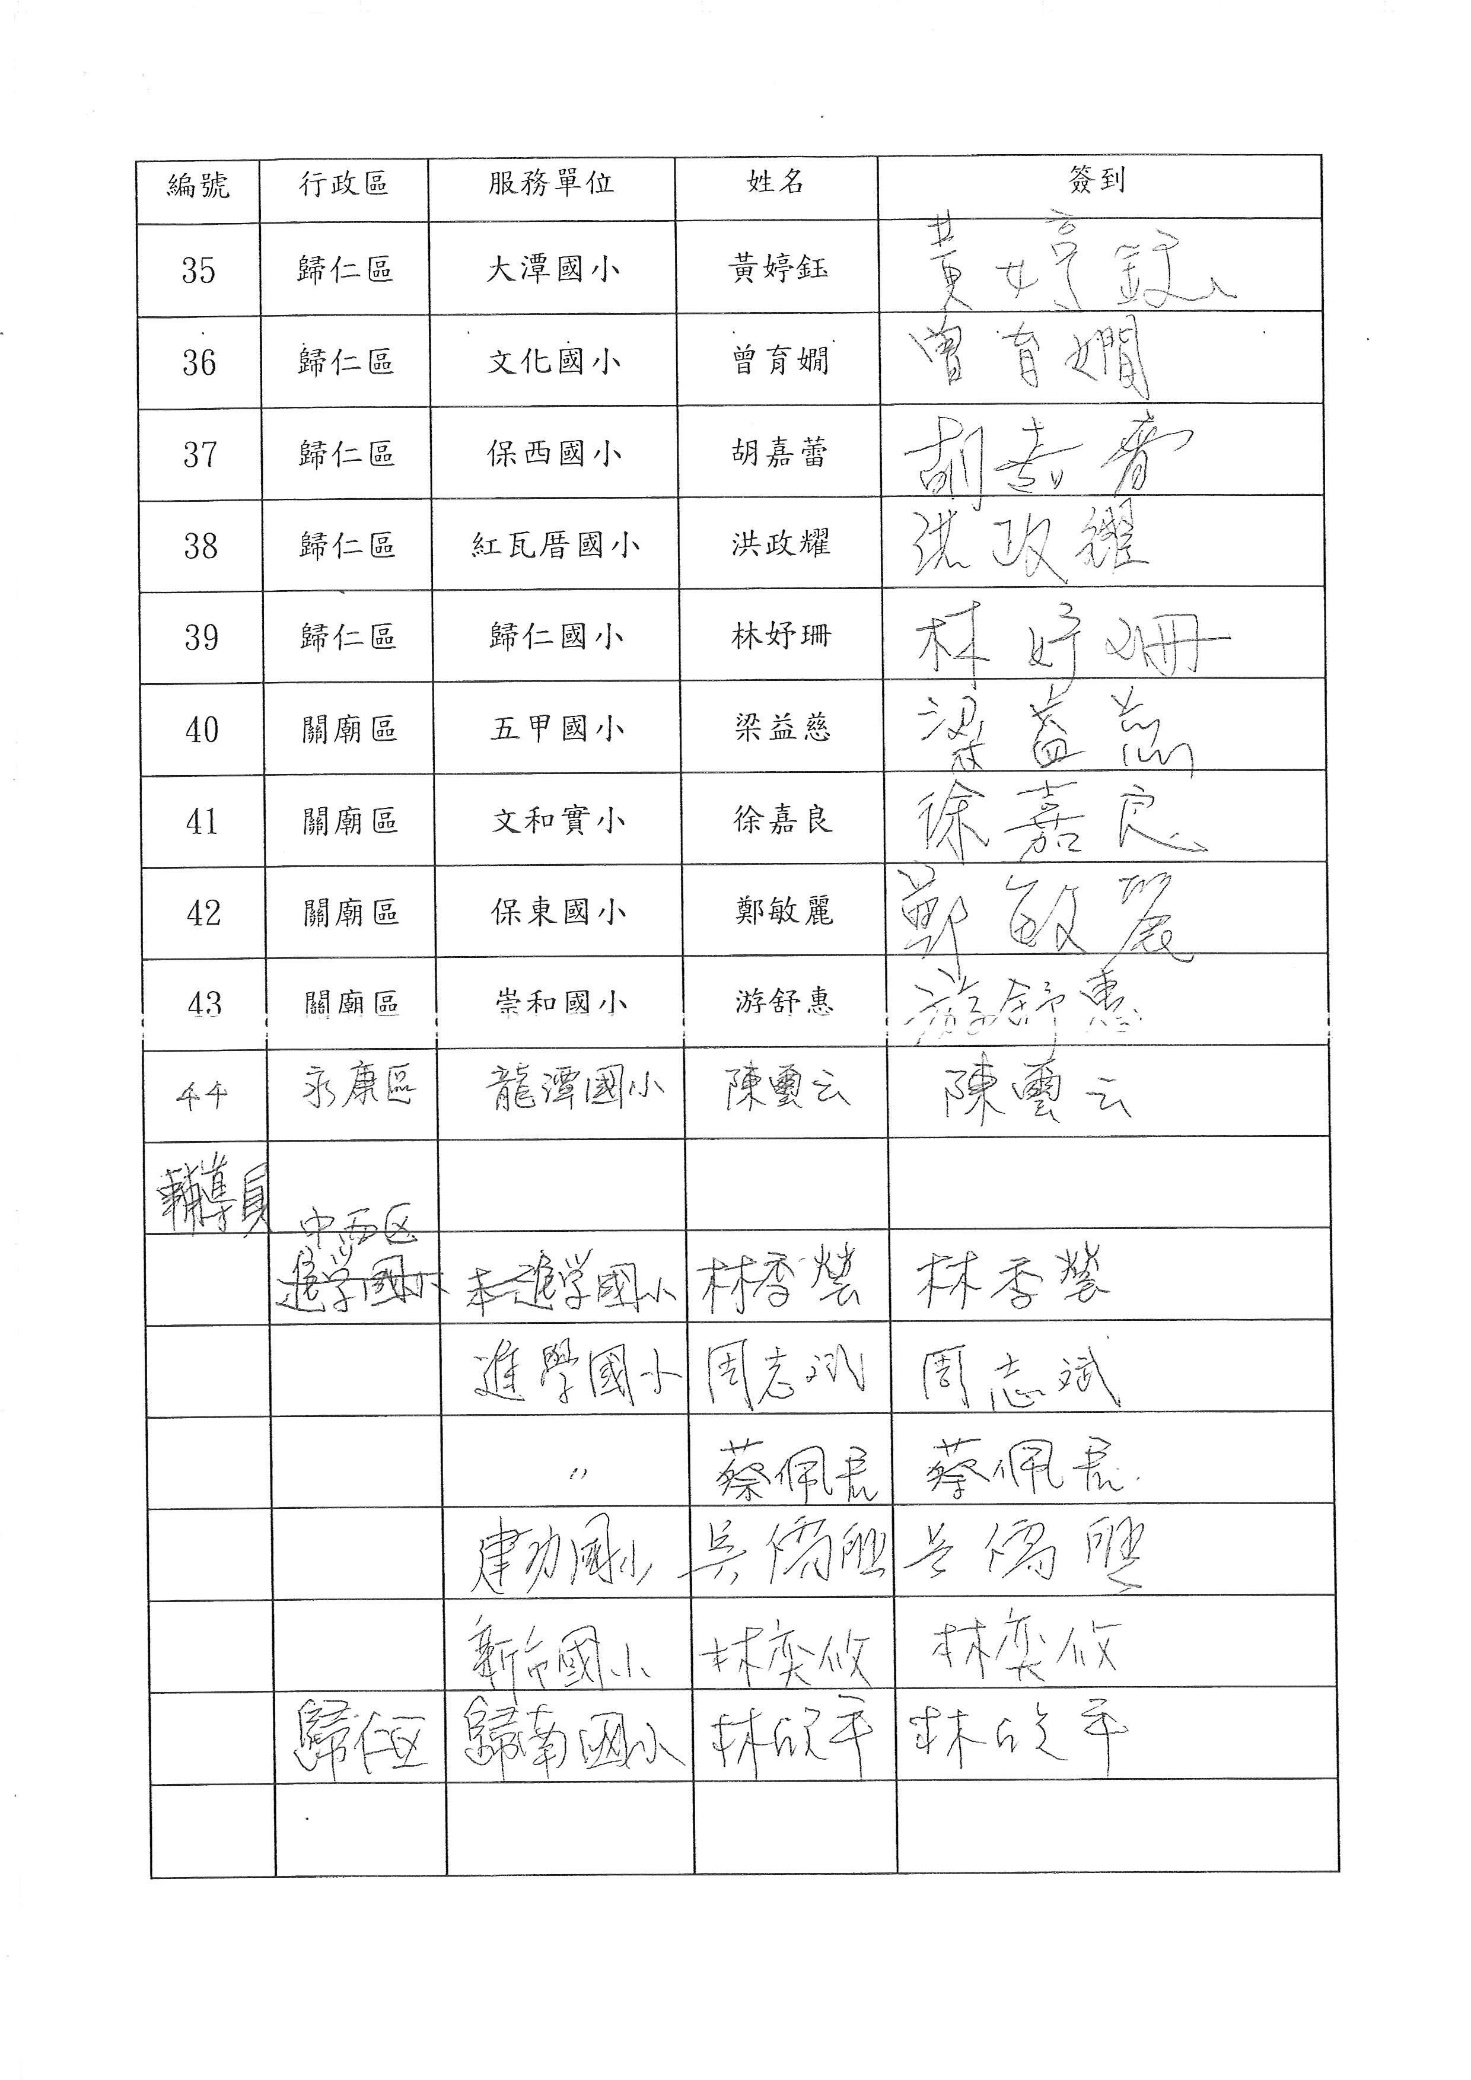 編號 行政區 服務單位 姓名 簽到
35 歸仁區 大潭國小 黃婷鈺 黃婷鈺
36 歸仁區 文化國小 曾育嫺 曾育嫺
37 歸仁區 保西國小 胡嘉蕾 胡嘉蕾
38 歸仁區 紅瓦厝國小 洪政耀 洪政耀
39 歸仁區 歸仁國小 林妤珊 林妤珊
40 關廟區 五甲國小 梁益慈 梁益慈
41 關廟區 文和實小 徐嘉良 徐嘉良
42 關廟區 保東國小 鄭敏麗 鄭敏麗
43 關廟區 崇和國小 游舒惠 游舒惠
44 永康區 龍潭國小 陳璽云 陳璽云
輔導員
中西区
進学國小 進学國小 林季營 林季營
進學國小 周志斌 周志斌
〃 蔡佩君 蔡佩君
建功國小 吳僑 吳僑
新市國小 林奕攸 林奕攸
歸仁区 歸南國小 林欣平 林欣平